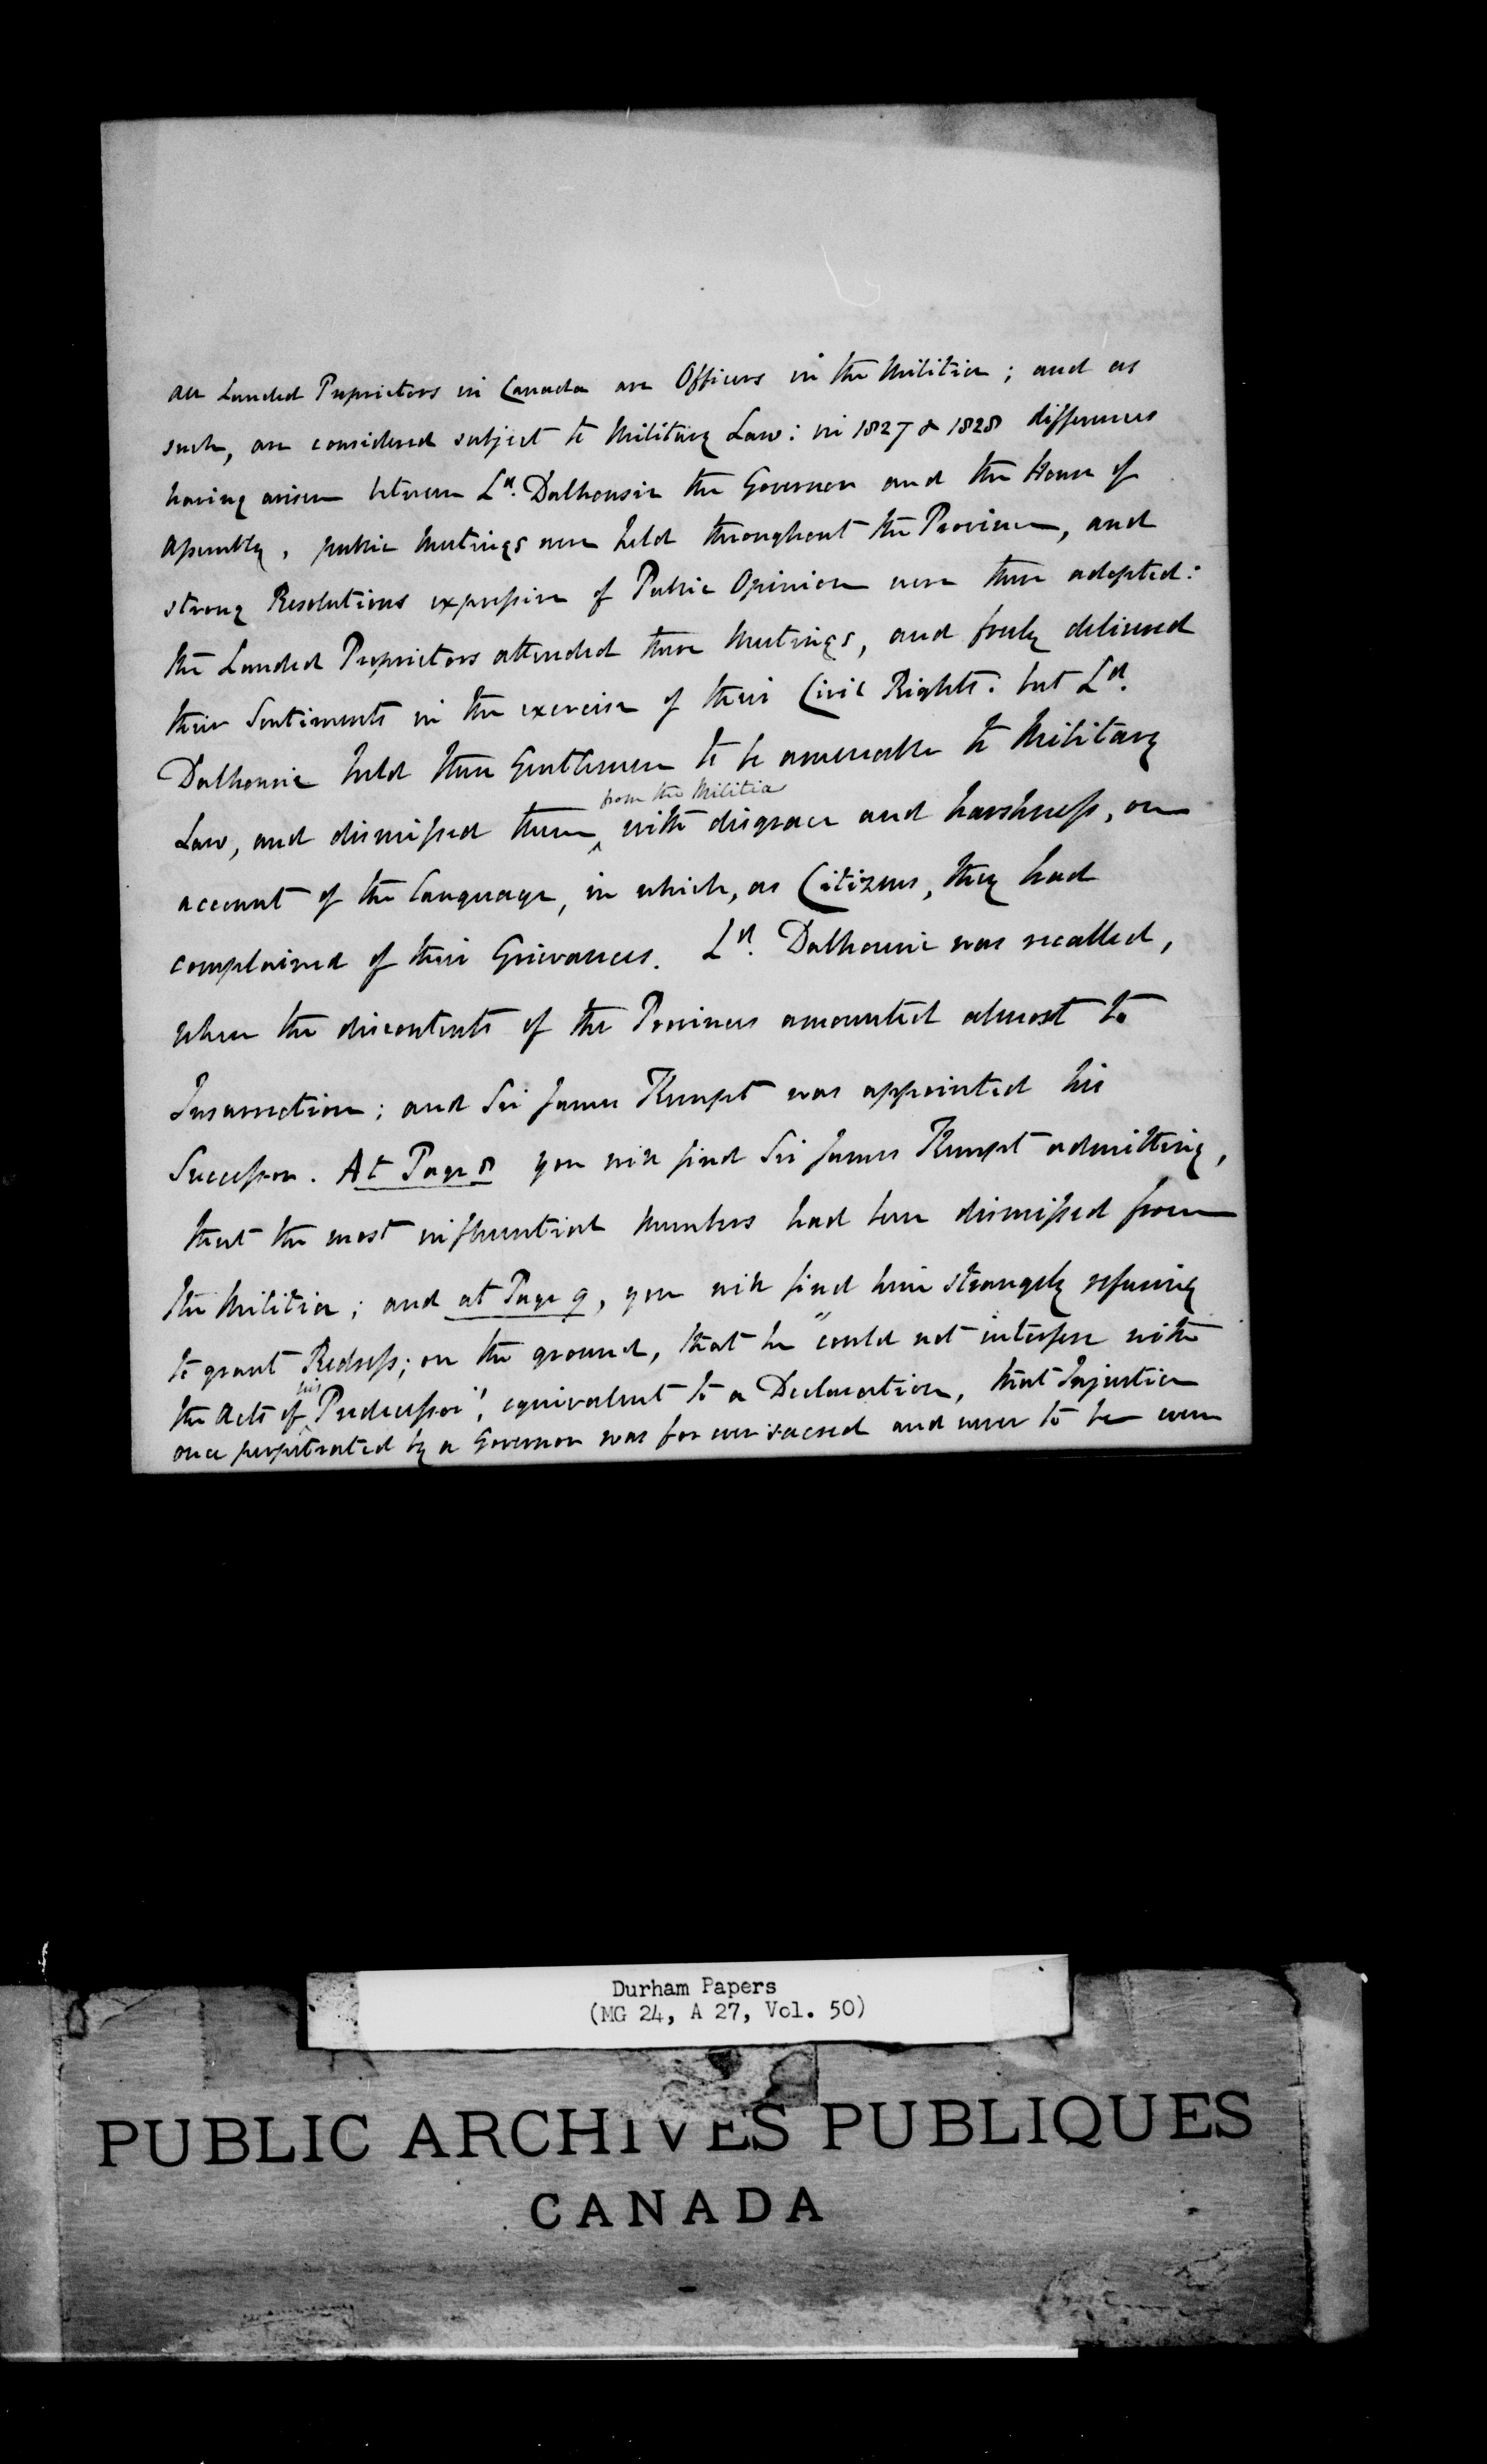 all Landed Proprietors in Canada are Officers in the Militia; and as
such, are considered subject to Military Law: in 1827 & 1828 differences
having arisen between Ld. Dalhousie the Governor and the House of
Assembly, public Meetings were held throughout the Province, and
strong Resolutions expressive of Public Opinion were there adopted:
the Landed Proprietors attended these Meetings, and freely delivered
their Sentiments in the exercise of their Civic Rights: but Ld.
Dalhousie held these Gentlemen to be amenable to Military
from the Militia
Law, and dismissed them ^ with disgrace and harshness, on
account of the Language, in which, as Citizens, they had
complained of their Grievances. Ld. Dalhousie was recalled,
when the discontents of the Provinces amounted almost to
Insurrection; and Sir James Kempt was appointed his
Successor. At Page 8 you will find Sir James Kempt admitting,
that the most influential Members had been dismissed from
the Militia; and at Page 9, you will find him strangely refusing
to grant Redress; on the ground, that he "could not interfere with
his
the Acts of ^ Predecessor", equivalent to a Declaration, that Injustice
once perpetrated by a Governor was for ever sacred and never to be even
Durham Papers
(MG 24, A 27, Vol. 50)
PUBLIC ARCHIVES PUBLIQUES
CANADA